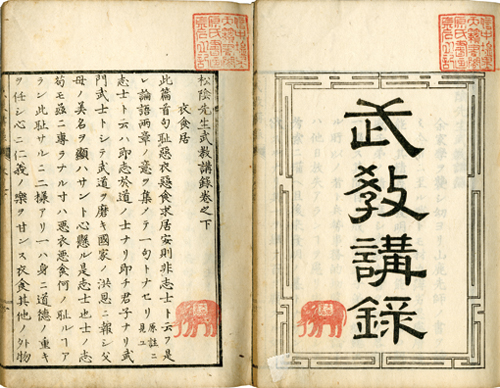 武教講録
松陰先生武教講録巻之下
衣食居
此篇首句恥惡衣惡食求居安則非志士ト云フ是
レ論語両章ノ意ヲ集メテ一句トナセリ原註ニ見ユ
志士ト云ハ即志於道ノ士ナリ即チ君子ナリ武
門武士トシテ武道ヲ磨キ國家ノ洪恩ニ報シ父
母ノ美名ヲ顯ハサント心懸ル是志士也士ノ志
苟モ茲ニ專ラナル寸ハ惡衣惡食何ノ恥ルヿア
ラン此恥サルニ二様アリ一ハ身ニ道德ノ重キ
ヲ任シ心ニ仁義ノ樂ヲ甘ンス衣食其他ノ外物